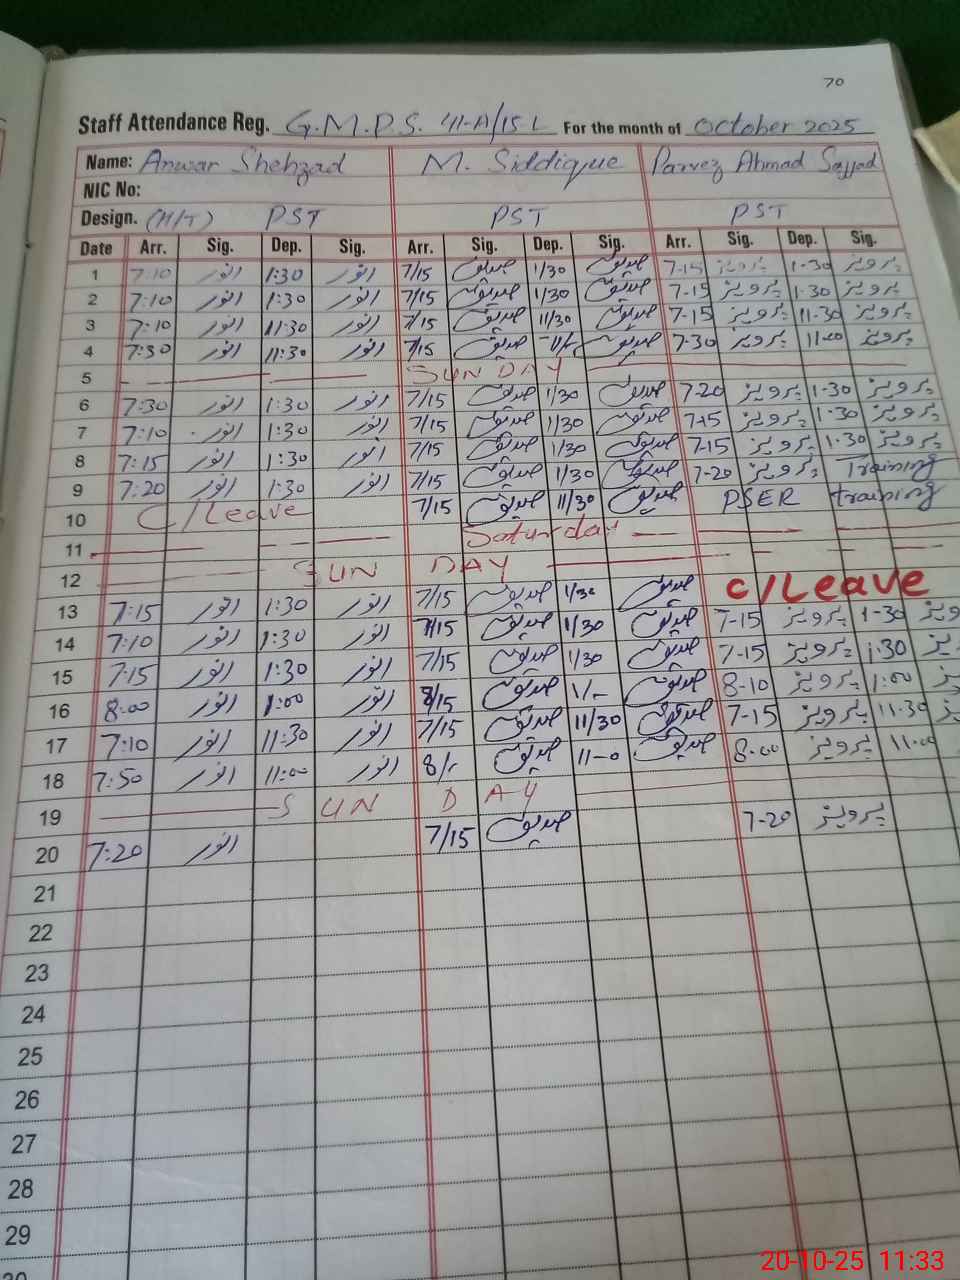 70
Staff Attendance Reg. G.M.P.S. 41-A/15-L For the month of October 2025
Name: Anwar Shehzad M. Siddique Parvez Ahmad Sajjad
NIC No:
Design. (H/T) PST PST PST
Date Arr. Sig. Dep. Sig. Arr. Sig. Dep. Sig. Arr. Sig. Dep. Sig.
1 7:10 انور 1:30 انور 7/15 صدیق 1/30 صدیق 7-15 پرویز 1-30 پرویز
2 7:10 انور 1:30 انور 7/15 صدیق 1/30 صدیق 7-15 پرویز 1-30 پرویز
3 7:10 انور 11:30 انور 7/15 صدیق 11/30 صدیق 7-15 پرویز 11-30 پرویز
4 7:30 انور 11:30 انور 7/15 صدیق 11/- صدیق 7-30 پرویز 11-00 پرویز
5 SUNDAY
6 7:30 انور 1:30 انور 7/15 صدیق 1/30 صدیق 7-20 پرویز 1-30 پرویز
7 7:10 انور 1:30 انور 7/15 صدیق 1/30 صدیق 7-15 پرویز 1-30 پرویز
8 7:15 انور 1:30 انور 7/15 صدیق 1/30 صدیق 7-15 پرویز 1-30 پرویز
9 7:20 انور 1:30 انور 7/15 صدیق 1/30 صدیق 7-20 پرویز Training
10 C/Leave 7/15 صدیق 11/30 صدیق PSER training
11 Saturday
12 SUN DAY
13 7:15 انور 1:30 انور 7/15 صدیق 1/30 صدیق C/Leave
14 7:10 انور 1:30 انور 7/15 صدیق 1/30 صدیق 7-15 پرویز 1-30 پرویز
15 7:15 انور 1:30 انور 7/15 صدیق 1/30 صدیق 7-15 پرویز 1-30
16 8:00 انور 1:00 انور 8/15 صدیق 1/- صدیق 8-10 پرویز 1:00
17 7:10 انور 11:30 انور 7/15 صدیق 11/30 صدیق 7-15 پرویز 11-30
18 7:50 انور 11:00 انور 8/- صدیق 11-0 صدیق 8-00 پرویز 11-00
19 SUN DAY
20 7:20 انور 7/15 صدیق 7-20 پرویز
21
22
23
24
25
26
27
28
29
30
20-10-25 11:33